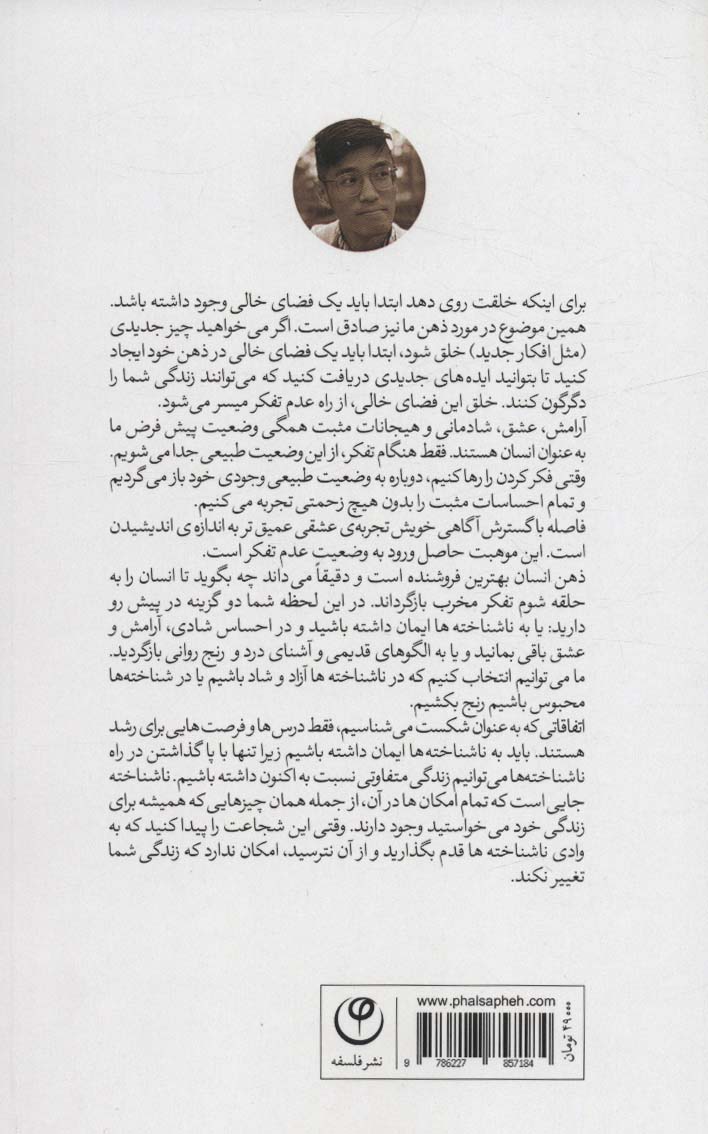 برای اینکه خلقت روی دهد ابتدا باید یک فضای خالی وجود داشته باشد.
همین موضوع در مورد ذهن ما نیز صادق است. اگر می‌خواهید چیز جدیدی
(مثل افکار جدید) خلق شود، ابتدا باید یک فضای خالی در ذهن خود ایجاد
کنید تا بتوانید ایده‌های جدیدی دریافت کنید که می‌توانند زندگی شما را
دگرگون کنند. خلق این فضای خالی، از راه عدم تفکر میسر می‌شود.
آرامش، عشق، شادمانی و هیجانات مثبت همگی وضعیت پیش فرض ما
به عنوان انسان هستند. فقط هنگام تفکر، از این وضعیت طبیعی جدا می‌شویم.
وقتی فکر کردن را رها کنیم، دوباره به وضعیت طبیعی وجودی خود باز می‌گردیم
و تمام احساسات مثبت را بدون هیچ زحمتی تجربه می‌کنیم.
فاصله با گسترش آگاهی خویش تجربه‌ی عشقی عمیق تر به اندازه ی اندیشیدن
است. این موهبت حاصل ورود به وضعیت عدم تفکر است.
ذهن انسان بهترین فروشنده است و دقیقاً می‌داند چه بگوید تا انسان را به
حلقه شوم تفکر مخرب بازگرداند. در این لحظه شما دو گزینه در پیش رو
دارید: یا به ناشناخته ها ایمان داشته باشید و در احساس شادی، آرامش و
عشق باقی بمانید و یا به الگوهای قدیمی و آشنای درد و رنج روانی بازگردید.
ما می‌توانیم انتخاب کنیم که در ناشناخته ها آزاد و شاد باشیم یا در شناخته‌ها
محبوس باشیم رنج بکشیم.
اتفاقاتی که به عنوان شکست می‌شناسیم، فقط درس‌ها و فرصت‌هایی برای رشد
هستند. باید به ناشناخته‌ها ایمان داشته باشیم زیرا تنها با پا گذاشتن در راه
ناشناخته‌ها می‌توانیم زندگی متفاوتی نسبت به اکنون داشته باشیم. ناشناخته
جایی است که تمام امکان ها در آن، از جمله همان چیزهایی که همیشه برای
زندگی خود می‌خواستید وجود دارند. وقتی این شجاعت را پیدا کنید که به
وادی ناشناخته ها قدم بگذارید و از آن نترسید، امکان ندارد که زندگی شما
تغییر نکند.
www.phalsapheh.com
۴۹۰۰۰ تومان
9 786227 857184
نشر فلسفه